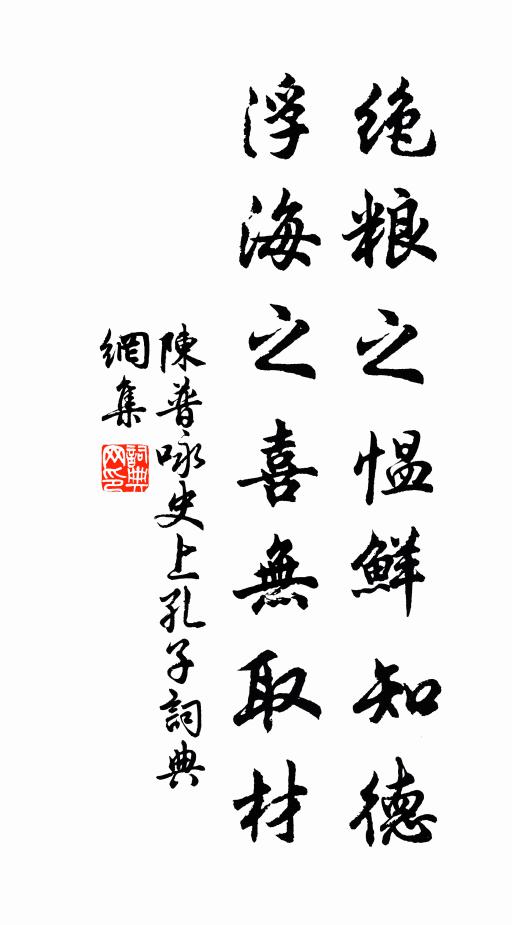 绝粮之愠鲜知德
浮海之喜無取材
陳普咏史上孔子詞典
網集
詞典
网印